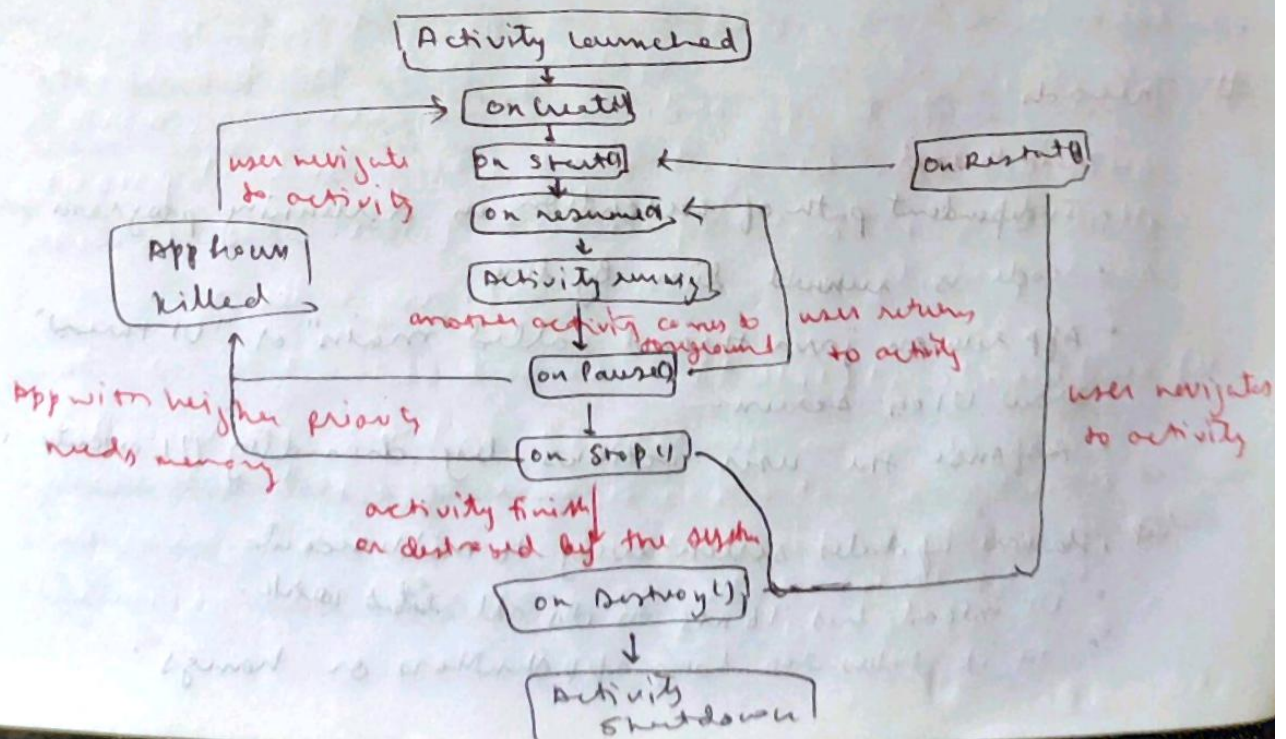 Activity launched
onCreate()
on Start()
on Restart()
user navigate
to activity
on resume()
App
killed
Activity
another activity comes to
foreground
user returns
to activity
on Pause()
App with higher priority
needs memory
user navigates
to activity
on Stop ()
activity finish
or destroyed by the system
on Destroy()
Activity
Shutdown